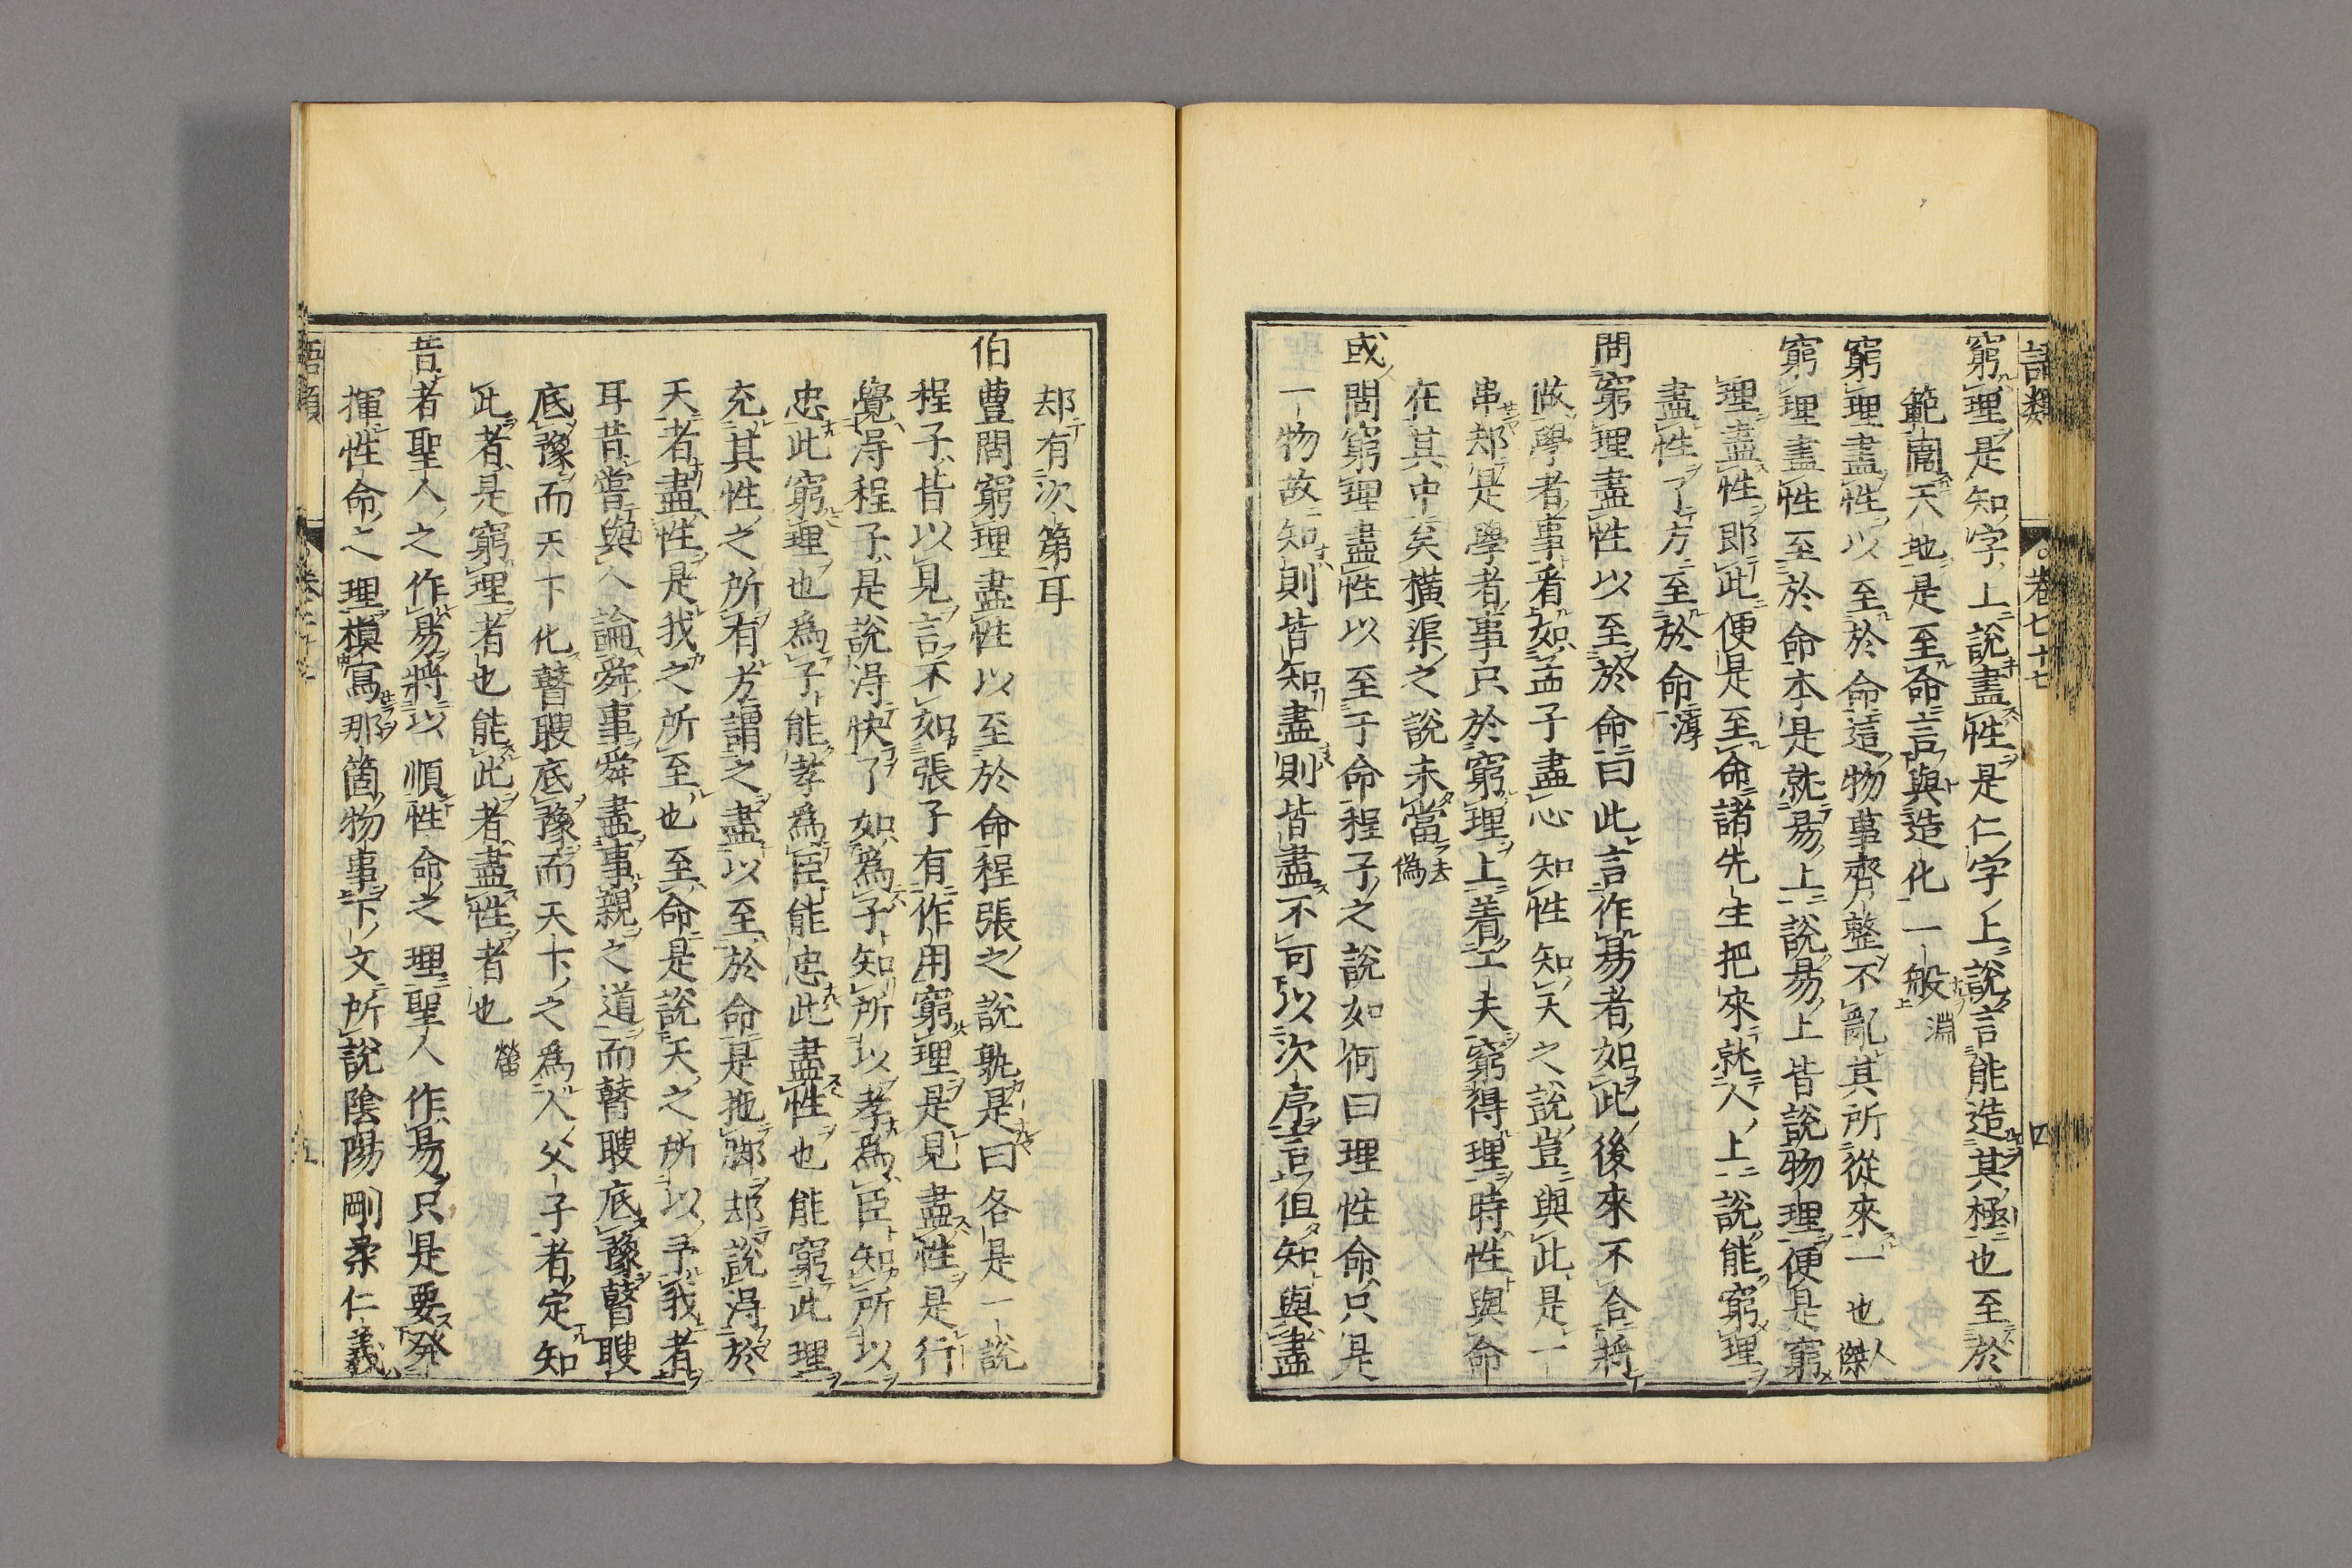 語類
卷七十七
四
窮理是知字上說盡性是仁字上說言能造其極也至於
範圍天地是至命言與造化一般淵
窮理盡性以至於命這物事齊整不亂其所從來一也人傑
窮理盡性至於命本是就易上說易上皆說物理便是窮
理盡性即此便是至命諸先生把來就人上說能窮理
盡性了方至於命淳
問窮理盡性以至於命曰此言作易者如此後來不合將
做學者事看如孟子盡心知性知天之說豈與此是一
串却是學者事只於窮理上着工夫窮得理時性與命
在其中矣橫渠之說未當去偽
或問窮理盡性以至于命程子之說如何曰理性命只是
一物故知則皆知盡則皆盡不可以次序言但知與盡
却有次第耳
伯豊問窮理盡性以至於命程張之說孰是曰各是一說
程子皆以見言不如張子有作用窮理是見盡性是行
覺淂程子是說淂快了如為子知所以孝為臣知所以
忠此窮理也為子能孝為臣能忠此盡性也能窮此理
充其性之所有方謂之盡以至於命是拖脚却說淂於
天者盡性是我之所至也至命是說天之所以予我者
耳昔嘗與人論舜事舜盡事親之道而瞽瞍底豫瞽瞍
底豫而天下化瞽瞍底豫而天下之為人父子者定知
此者是窮理者也能此者盡性者也㽦
昔者聖人之作易將以順性命之理聖人作易只是要發
揮性命之理模寫那箇物事下文所說陰陽剛柔仁義
語類